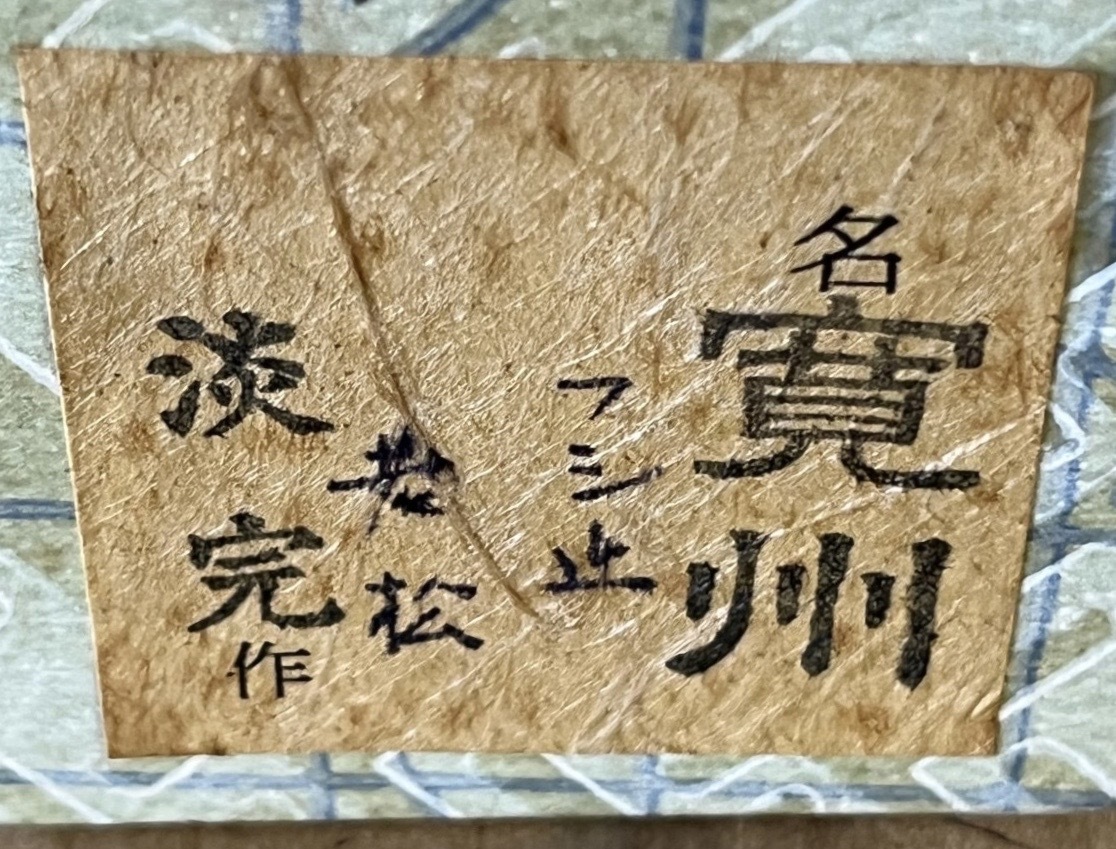 名寛州
フシ止
老松
淡完作